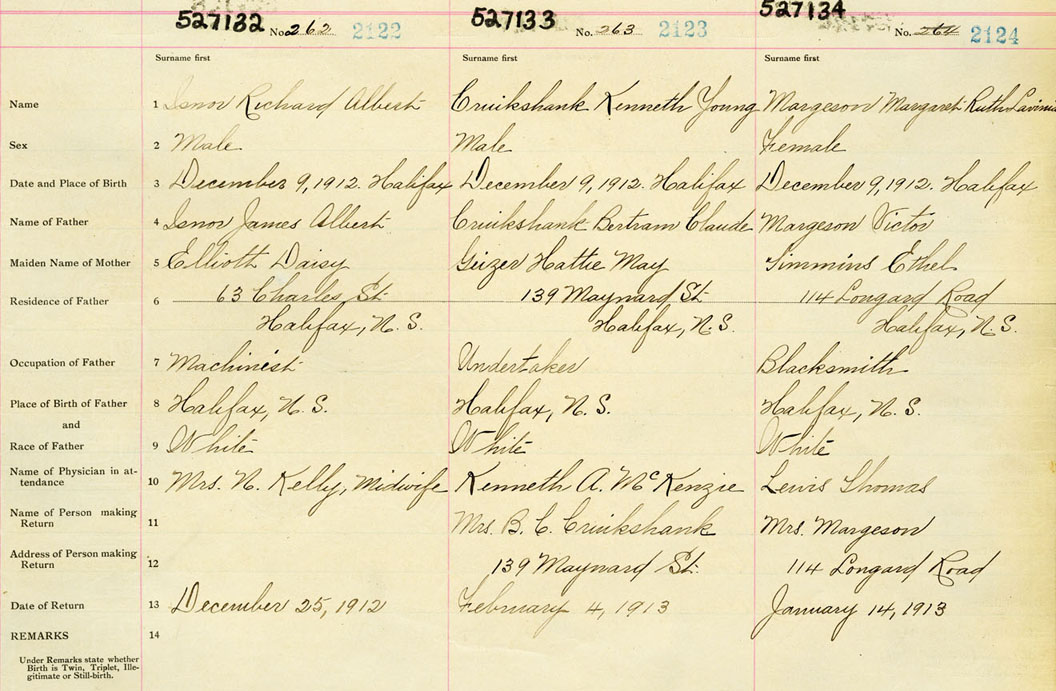 527132 No. 262 2122 527133 No. 263 2123 527134 No. 264 2124
Surname first Surname first Surname first
Name 1 Isnor Richard Albert Cruikshank Kenneth Young Margeson Margaret Ruth Lavinia
Sex 2 Male Male Female
Date and Place of Birth 3 December 9, 1912. Halifax December 9, 1912. Halifax December 9, 1912. Halifax
Name of Father 4 Isnor James Albert Cruikshank Bertram Claude Margeson Victor
Maiden Name of Mother 5 Elliott Daisy Geizer Hattie May Simmins Ethel
Residence of Father 6 63 Charles St. 139 Maynard St. 114 Longard Road
Halifax, N.S. Halifax, N.S. Halifax, N.S.
Occupation of Father 7 Machinist Undertaker Blacksmith
Place of Birth of Father 8 Halifax, N.S. Halifax, N.S. Halifax, N.S.
and
Race of Father 9 White White White
Name of Physician in at-
tendance 10 Mrs. N. Kelly, Midwife Kenneth A. McKenzie Lewis Thomas
Name of Person making
Return 11 Mrs. B. C. Cruikshank Mrs. Margeson
Address of Person making
Return 12 139 Maynard St. 114 Longard Road
Date of Return 13 December 25, 1912 February 4, 1913 January 14, 1913
REMARKS 14
Under Remarks state whether
Birth is Twin, Triplet, Ille-
gitimate or Still-birth.